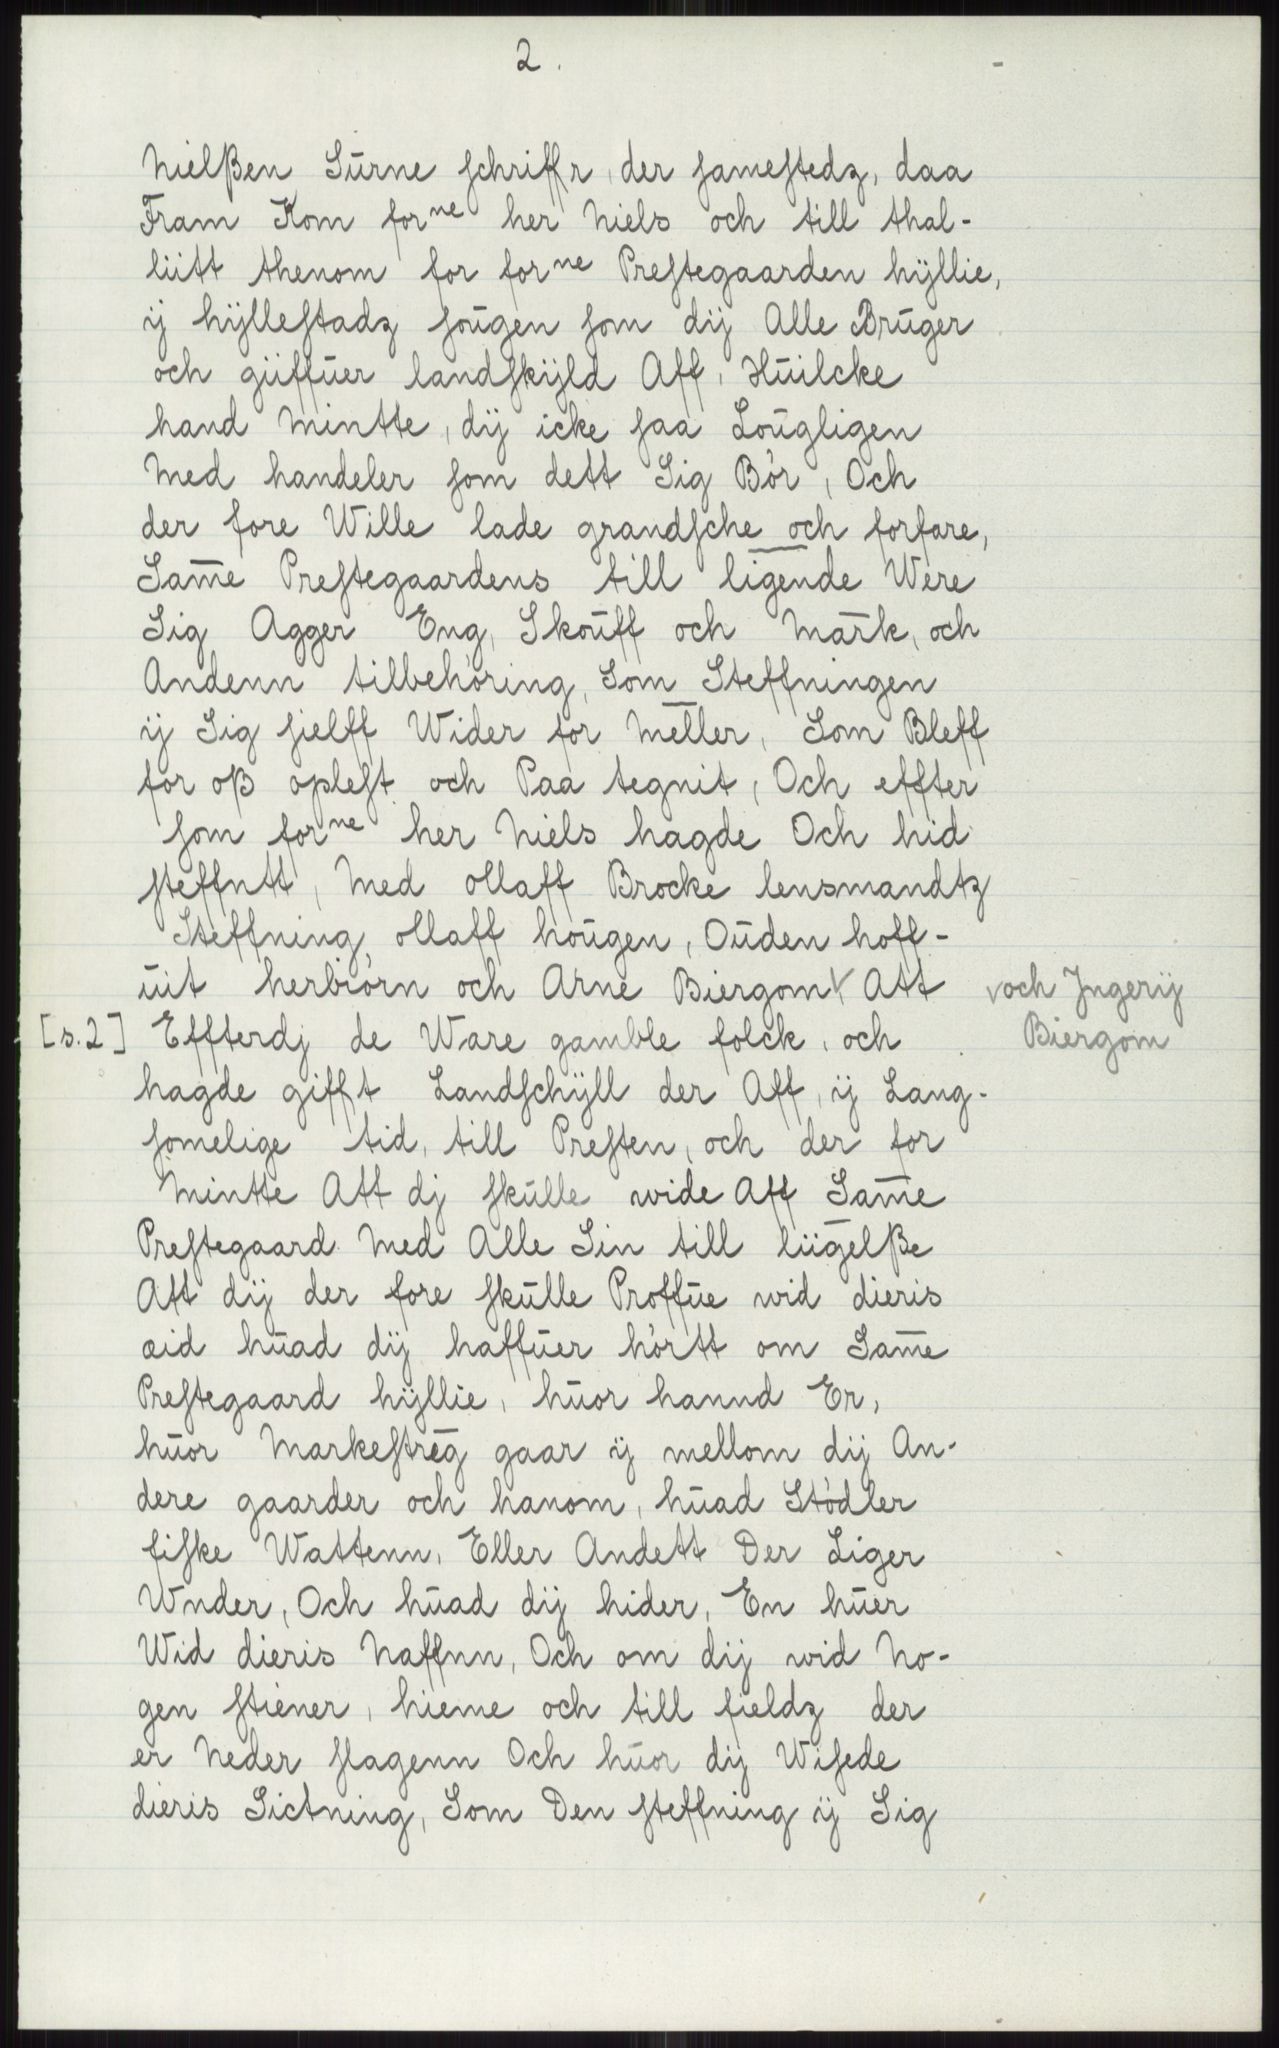 2.
Nielßen Surne schriffr, der samestedz, daa
Fram Kom forne her Niels och till thal-
liitt thenom for forne Prestegaarden hÿllie,
ij hÿllestadz sougen som dij Alle Bruger
och giiffuer landskÿld Aff, Huilcke
hand Mintte, dij icke saa Lougligen
Med handeler som dett Sig Bór, Och
der fore Wille lade grandsche och forfare,
Sam̅e Prestegaardens till ligende Were
Sig Agger Eng, Skouff och Mark, och
Andenn tilbehóring, Som Steffningen
ij Sig sielff Wider for Meller, Som Bleff
for oß oplest och Paa tegnit, Och effter
som forne her Niels hagde Och hid
steffntt, Med ollaff Brocke lensmandtz
Steffning, ollaff hougen, Ouden hoff-
uit herbiórn och Arne Biergom √ Att √ och Jngerij
Biergom
[s.2] Effterdj de Ware gamble folck, och
hagde gifft Landschÿll der Aff, ij Lang-
somelige tid, till Presten, och der for
Mintte Att dj skulle wide Aff Sam̅e
Prestegaard Med Alle Sin till liigelße
Att dij der fore skulle Proffue wid dieris
æid huad dij haffuer hórtt om Sam̅e
Prestegaard hÿllie, huor hannd Er,
huor Markestreg gaar ij mellom dij An-
dere gaarder och hanom, huad Stódler
fiske Wattenn, Eller Andett Der Liger
Wnder, Och huad dij hider, En huer
Wid dieris Naffnn, Och om dij wid No-
gen stiener, hieme och till fieldz der
er Neder slagenn Och huor dij Wisede
dieris Sictning, Som Den steffning ij Sig